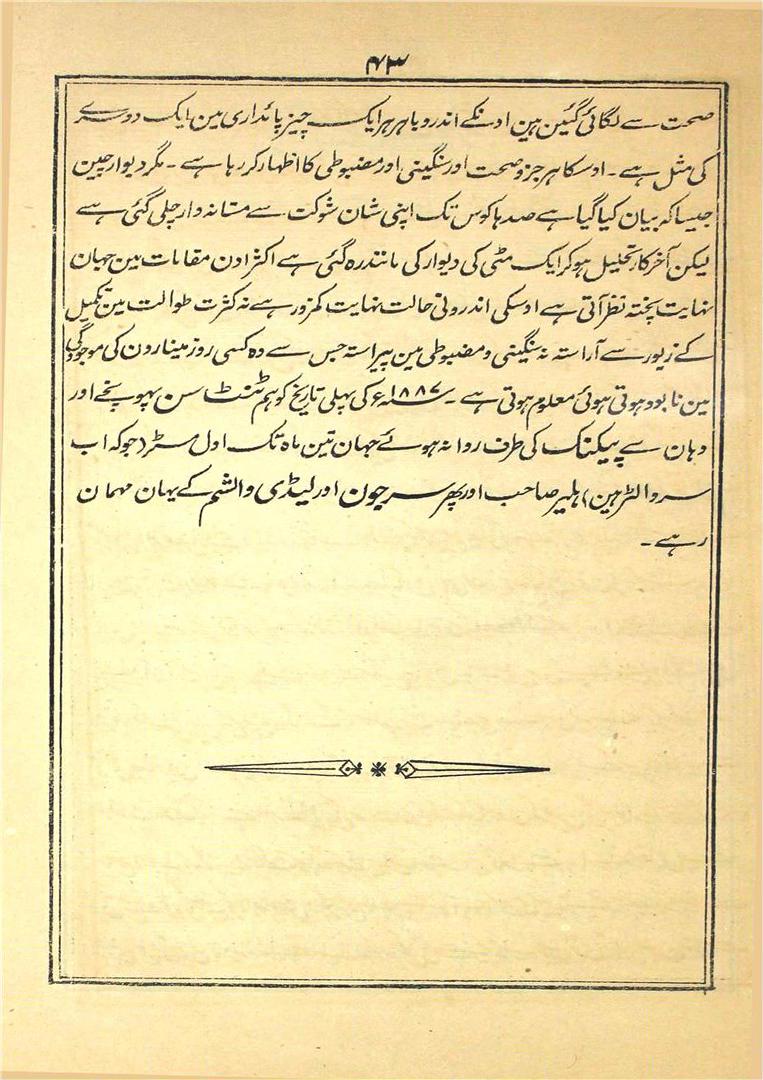 ۴۳
صحت سے لگائی گئین ہین اونکے اندر و باہر ہر ایک چیز پائداری مین ایک دوسرے
کی مثل ہے۔ اوسکا ہر جزو صحت اور سنگینی اور مضبوطی کا اظہار کر رہا ہے۔ مگر دیوار چین
جیسا کہ بیان کیا گیا ہے صدہا کوس تک اپنی شان شوکت سے مستانہ وار چلی گئی ہے
لیکن آخر کار تحلیل ہو کر ایک مٹی کی دیوار کی مانند رہ گئی ہے اکثر اون مقامات مین جہان
نہایت پختہ نظر آتی ہے اوسکی اندرونی حالت نہایت کمزور ہے نہ کثرت طوالت مین تکمیل
کے زیور سے آراستہ نہ سنگینی و مضبوطی مین پیراستہ جس سے وہ کسی روز مینارون کی موجودگی
مین نابود ہوتی ہوئی معلوم ہوتی ہے۔ ۱۸۸۷ء کی پہلی تاریخ کو ہم ٹنٹ سن پہونچے اور
وہان سے پیکنگ کی طرف روانہ ہوئے جہان تین ماہ تک اول مسٹر (جو کہ اب
سر والٹر ہین) ہلیر صاحب اور پھر سر جون اور لیڈی والشم کے یہان مہمان
رہے۔